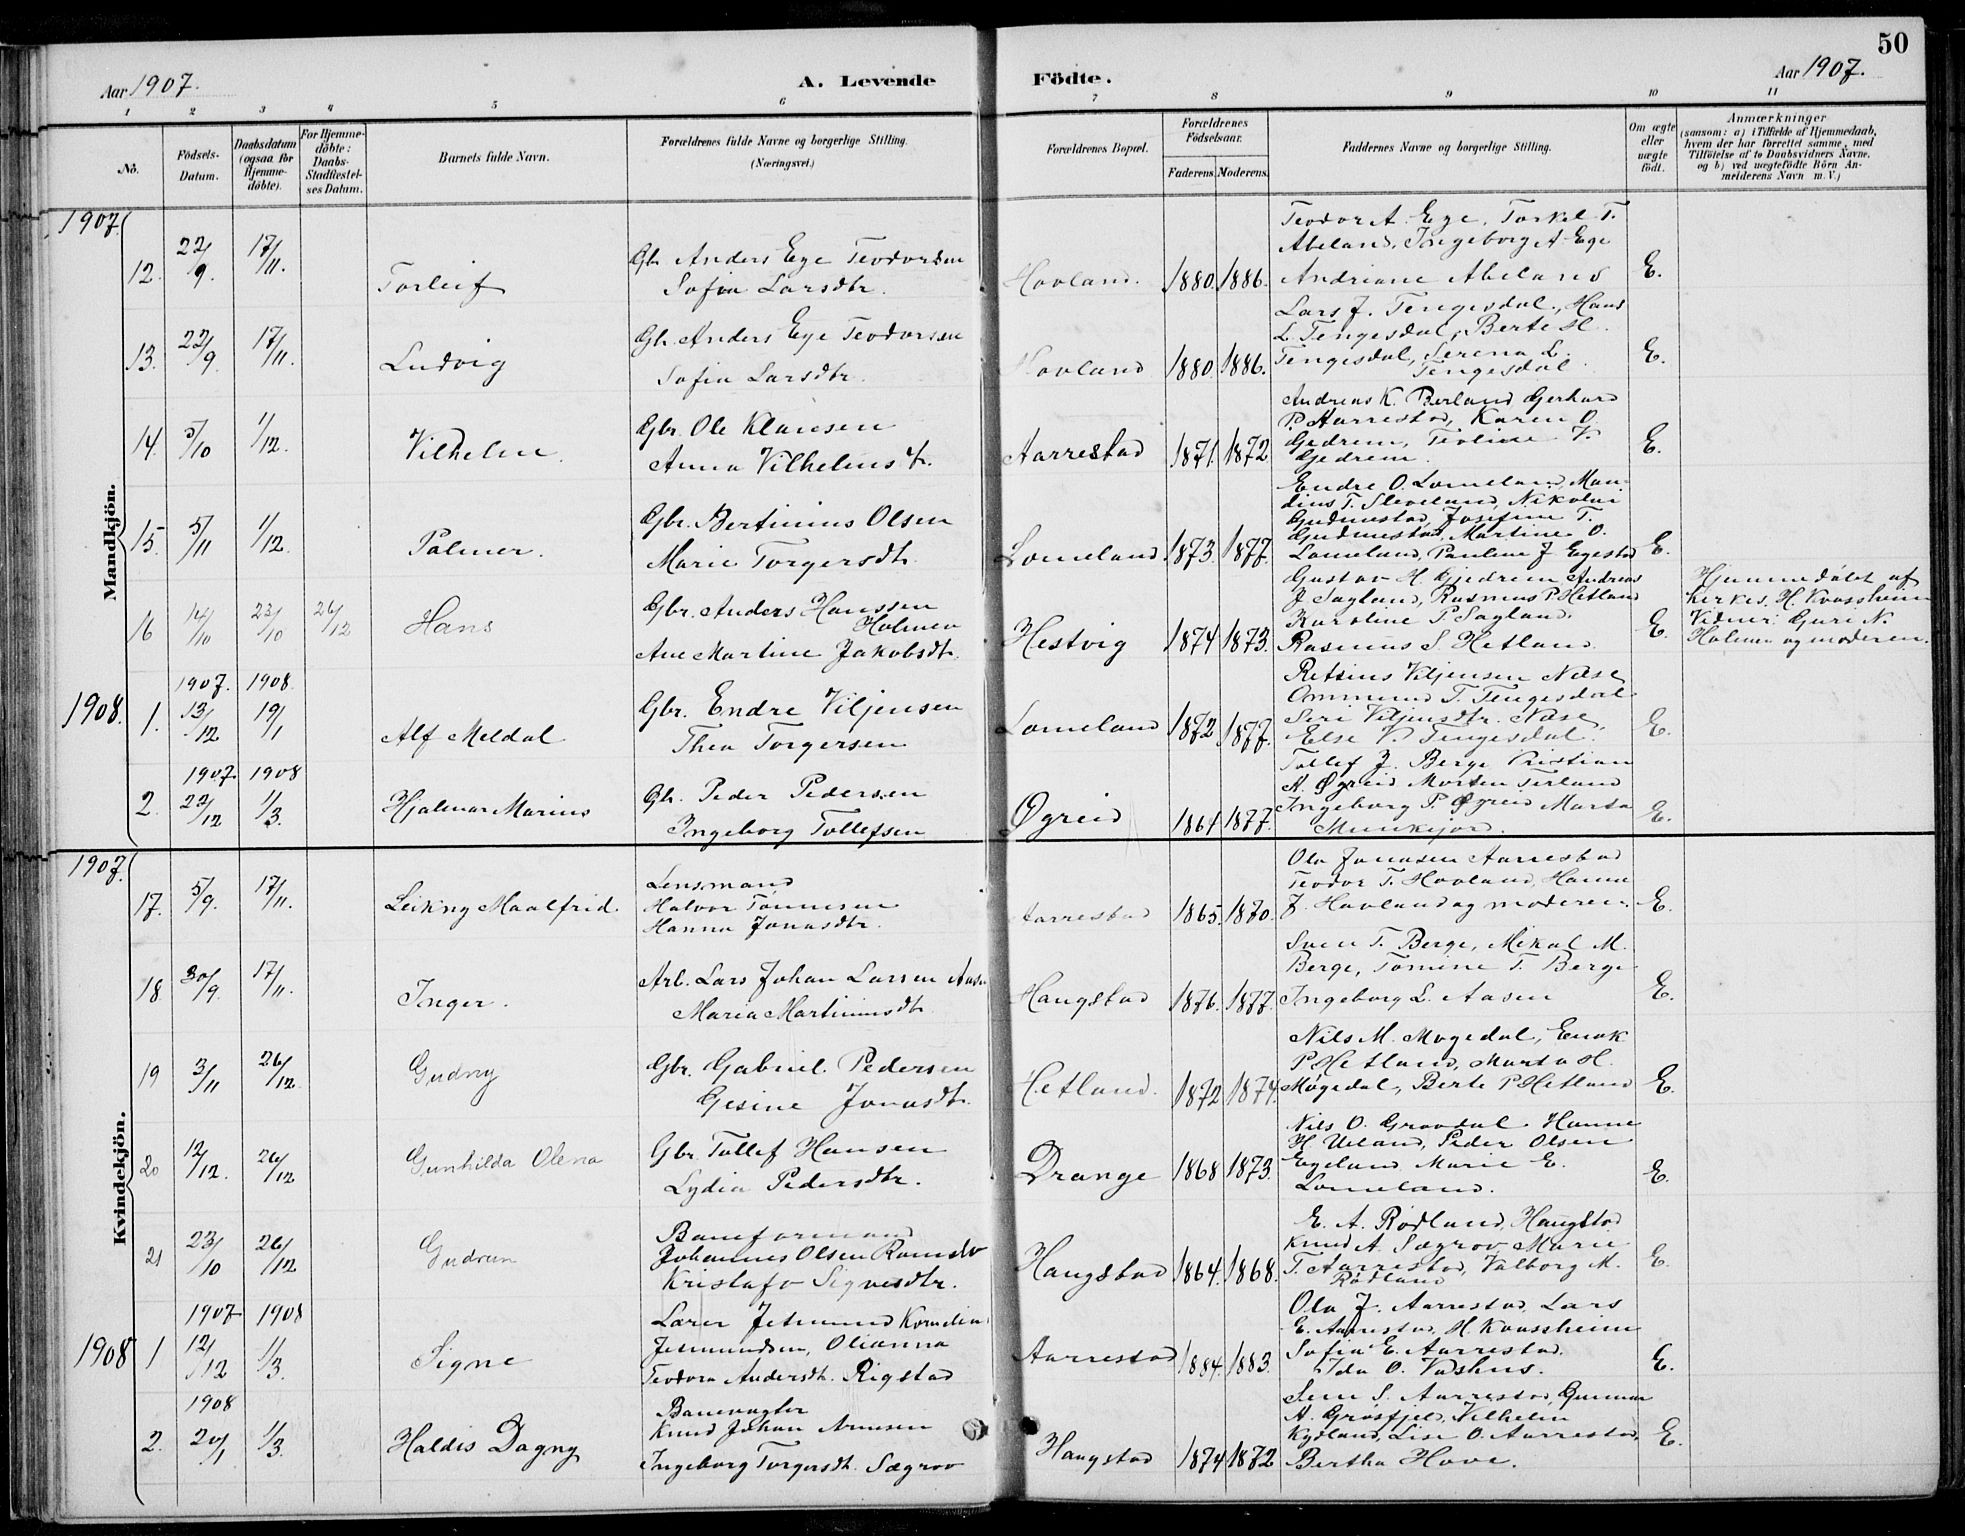 50
Aar 1907.
A. Levende
Födte.
Aar 1907.
1 2 3 4 5 6 7 8 9 10 11
No.
Födsels-Datum.
Daabsdatum (ogsaa for Hjemme-döbte).
For Hjemme-döbte: Daabs-Stadfæstel-ses Datum.
Barnets fulde Navn.
Forældrenes fulde Navne og borgerlige Stilling.
(Næringsvei.)
Forældrenes Bopæl.
Forældrenes Födselsaar.
Faderens. Moderens.
Faddernes Navne og borgerlige Stilling.
Om ægte eller uægte födt.
Anmærkninger
(saasom: a) i Tilfælde af Hjemmedaab,
hvem der har forrettet samme, med
Tilföielse af to Daabsvidners Navne,
og b) ved uægtefödte Börn An-
melderens Navn m. V.)
Mandkjön.
1907.
12. 22/9. 17/11. Torleif
Gbr. Anders Ege Teodorsen
Sofia Larsdtr.
Hovland. 1880. 1886.
Teodor A. Ege, Torkel T.
Abeland, Ingeborg A. Ege
Andriane Abeland
E.
13. 22/9 17/11. Ludvig
Gbr. Anders Ege Teodorsen
Sofia Larsdtr.
Hovland 1880. 1886.
Lars J. Tengesdal, Hans
L. Tengesdal, Berte H.
Tengesdal, Serena L.
Tengesdal
E.
14. 5/10 1/12. Vilhelm
Gbr. Ole Klausen
Anna Vilhelmsdtr.
Aarrestad 1871. 1872
Andreas K. Berland Gerhard
P. Aarrestad, Karen O.
Gjedrem, Teoline V.
Gjedrem.
E.
15. 5/11 1/12. Palmer.
Gbr. Bertinius Olsen
Marie Torgersdtr.
Lomeland. 1873. 1877.
Endre O. Lomeland, Man-
dius T. Sleveland, Nikolai
Gudmestad, Josefine T.
Gudmestad, Martine O.
Lomeland, Pauline J. Egestad
E.
16 14/10 23/10 26/12 Hans
Gbr. Anders Hanssen
Holmen
Ane Martine Jakobsdtr.
Hestvig 1874 1873.
Gustav H. Gjedrem Andreas
J Sagland, Rasmus P. Hetland
Karoline P. Sagland.
Rasmus S. Hetland.
E.
Hjemmedöbt af
kirkes. H. Kvassheim
Vidner: Guri N.
Holmen og moderen.
1908.
1907. 1908.
1. 13/12 19/1 Alf Meldal
Gbr. Endre Viljensen
Thea Torgersen
Lomeland 1872 1877.
Retsius Viljensen Nase
Ommund T. Tengesdal
Siri Viljensdtr. Nase
Else V. Tengesdal.
E.
1907. 1908
2. 22/12 1/3. Hjalmar Marius
Gbr. Peder Pedersen
Ingeborg Tollefsen
Øgreid 1864 1877.
Tollef J. Berge Kristian
A. Øgreid Morten Terland
Ingeborg P. Øgreid Marta
Munkejord.
E.
Kvindekjön.
1907.
17. 5/9. 17/11. Leikny Maalfrid.
Lensmand
Halvor Tonnesen
Hanna Jonasdtr.
Aarrestad 1865. 1870.
Ola Jonasen Aarrestad
Teodor T. Hovland, Hanne
J. Hovland og moderen.
E.
18. 30/9. 17/11. Inger.
Arb. Lars Johan Larsen Aasen
Maria Martiniusdtr.
Haugstad 1876. 1877.
Sven T. Berge, Mikal M.
Berge, Tomine T. Berge
Ingeborg L. Aasen
E.
19 3/11 26/12. Gudny
Gbr. Gabriel Pedersen
Gesine Jonasdtr.
Hetland. 1872 1874.
Nils M. Møgedal, Enok
P. Hetland, Marta H.
Møgedal, Berte P. Hetland
E.
20 12/12. 26/12 Gunhilda Olena
Gbr. Tollef Hansen
Lydia Pedersdtr.
Drange 1868 1873.
Nils O. Gravdal Hanne
H. Ueland, Peder Olsen
Egeland Marie E.
Lomeland.
E.
21 23/10 26/12 Gudrun
Baneformand
Johannes Olsen Ramslv
Kristofo Signesdtr.
Haugstad 1864. 1868.
E. A. Rødland, Haugstad
Knud A. Sægrov, Marie
T. Aarrestad, Valborg M.
Rødland
E.
1908
1907 1908
1 12/12 1/3. Signe
Lærer Jesmund Kornelius
Jesmundsen, Olianna
Teodora Andersdtr. Rigstad
Aarrestad 1884. 1883.
Ola J. Aarrestad, Lars
E. Aarrestad, H. Kvassheim
Sofia E. Aarrestad.
Ida O. Vashus.
E.
1908
2. 20/1 1/3. Haldis Dagny
Banevogter
Knud Johan Arnesen
Ingeborg Torgersdtr. Sægrov
Haugstad 1874 1872
Sven S. Aarrestad, Gunnar
A. Grøsfjeld, Vilhelm
Kydland, Lise O. Aarrestad,
Bertha Hove.
E.